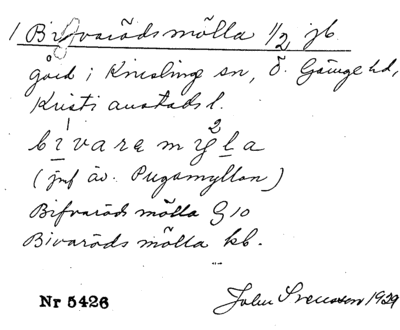 1 Bifvaröds mölla 1/2 jb
gård i Knislinge sn, Ö. Göinge hd,
Kristianstads l.
bivaramyla
(jmf äv. Pugamyllan)
Bifvaröds mölla G 10
Bivaröds mölla kb.
Nr 5426 John Svensson 1929